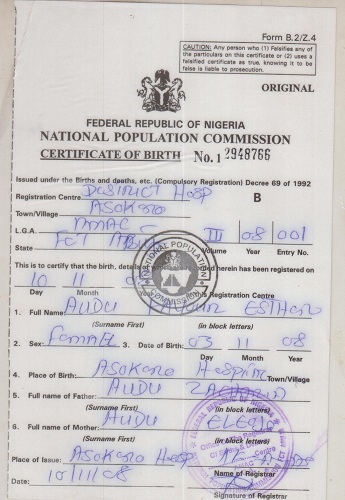 Form B.2/Z.4
CAUTION: Any person who (1) Falsifies any of
the particulars on this certificate or (2) uses a
falsified certificate as true, knowing it to be
false is liable to prosecution.
ORIGINAL
FEDERAL REPUBLIC OF NIGERIA
NATIONAL POPULATION COMMISSION
CERTIFICATE OF BIRTH No. 12948766
Issued under the Births and deaths, etc. (Compulsory Registration) Decree 69 of 1992
Registration Centre DISTRICT HOSP B
Town/Village ASOKORO
L.G.A. AMAC III 08 001
State FCT ABUJA Volume Year Entry No.
This is to certify that the birth, details herein has been registered on
10 11
Day Month Registration Centre
1. Full Name: AUDU ESTHER
(Surname First) (in block letters)
2. Sex: FEMALE 3. Date of Birth: 03 11 08
Day Month Year
4. Place of Birth: ASOKORO HOSPITAL Town/Village
5. Full name of Father: AUDU
(Surname First) (in block letters)
6. Full name of Mother: AUDU
(Surname First) (in block letters)
Place of Issue: ASOKORO HOSP
Name of Registrar
Date: 10/11/08
Signature of Registrar
NATIONAL POPULATION COMMISSION